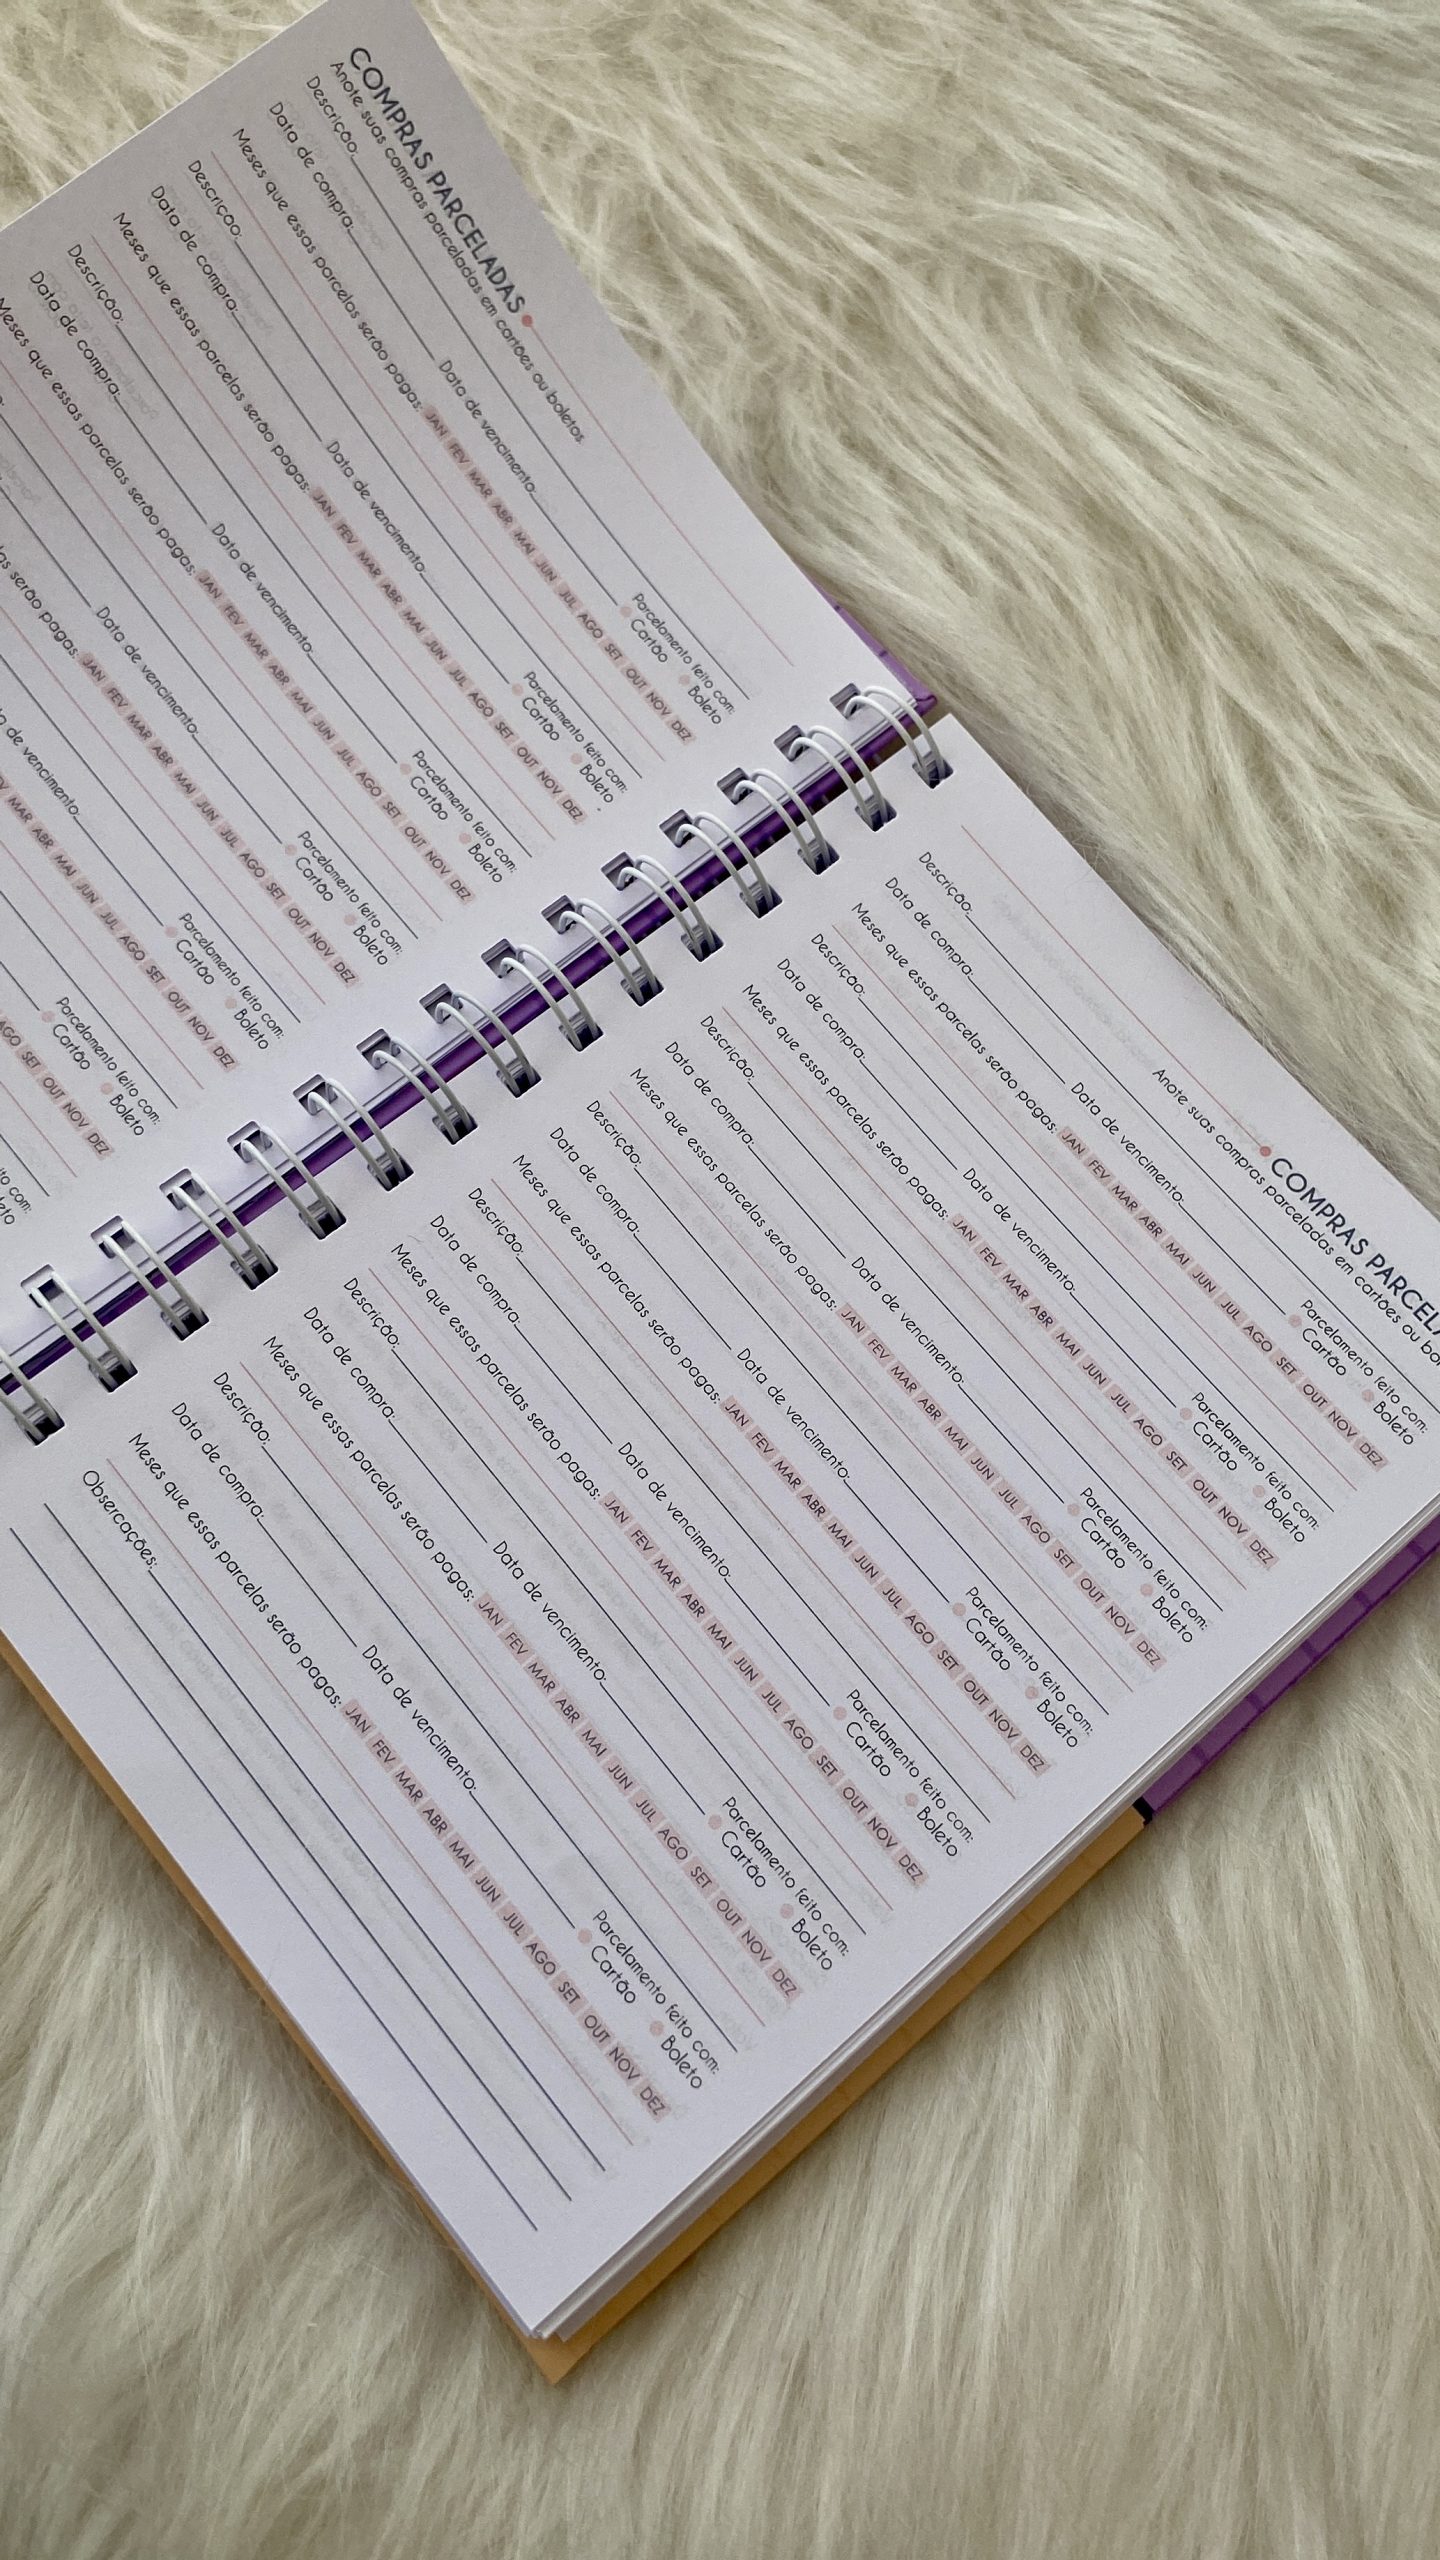 COMPRAS PARCELADAS
Anote suas compras parceladas em cartões ou boletos.
Descrição: Parcelamento feito com:
Data de compra: Data de vencimento: Cartão Boleto
Meses que essas parcelas serão pagas: JAN FEV MAR ABR MAI JUN JUL AGO SET OUT NOV DEZ
Descrição: Parcelamento feito com:
Data de compra: Data de vencimento: Cartão Boleto
Meses que essas parcelas serão pagas: JAN FEV MAR ABR MAI JUN JUL AGO SET OUT NOV DEZ
Descrição: Parcelamento feito com:
Data de compra: Data de vencimento: Cartão Boleto
Meses que essas parcelas serão pagas: JAN FEV MAR ABR MAI JUN JUL AGO SET OUT NOV DEZ
Parcelamento feito com:
Data de vencimento: Cartão Boleto
serão pagas: JAN FEV MAR ABR MAI JUN JUL AGO SET OUT NOV DEZ
Parcelamento feito com:
de vencimento: Cartão Boleto
MAR ABR MAI JUN JUL AGO SET OUT NOV DEZ
Parcelamento feito com:
Cartão Boleto
AGO SET OUT NOV DEZ
com:
COMPRAS PARCELA
Anote suas compras parceladas em cartões ou bo
Descrição: Parcelamento feito com:
Data de compra: Data de vencimento: Cartão Boleto
Meses que essas parcelas serão pagas: JAN FEV MAR ABR MAI JUN JUL AGO SET OUT NOV DEZ
Descrição: Parcelamento feito com:
Data de compra: Data de vencimento: Cartão Boleto
Meses que essas parcelas serão pagas: JAN FEV MAR ABR MAI JUN JUL AGO SET OUT NOV DEZ
Descrição: Parcelamento feito com:
Data de compra: Data de vencimento: Cartão Boleto
Meses que essas parcelas serão pagas: JAN FEV MAR ABR MAI JUN JUL AGO SET OUT NOV DEZ
Descrição: Parcelamento feito com:
Data de compra: Data de vencimento: Cartão Boleto
Meses que essas parcelas serão pagas: JAN FEV MAR ABR MAI JUN JUL AGO SET OUT NOV DEZ
Descrição: Parcelamento feito com:
Data de compra: Data de vencimento: Cartão Boleto
Meses que essas parcelas serão pagas: JAN FEV MAR ABR MAI JUN JUL AGO SET OUT NOV DEZ
Descrição: Parcelamento feito com:
Data de compra: Data de vencimento: Cartão Boleto
Meses que essas parcelas serão pagas: JAN FEV MAR ABR MAI JUN JUL AGO SET OUT NOV DEZ
Descrição: Parcelamento feito com:
Data de compra: Data de vencimento: Cartão Boleto
Meses que essas parcelas serão pagas: JAN FEV MAR ABR MAI JUN JUL AGO SET OUT NOV DEZ
Obsercações: